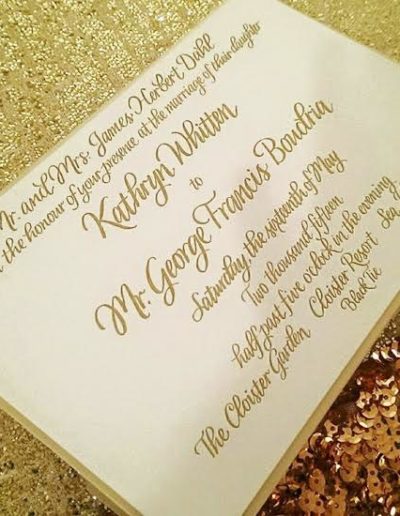 Mr. and Mrs. James Herbert Dahl
the honour of your presence at the marriage of their daughter
Kathryn Whitten
to
Mr. George Francis Boudria
Saturday, the sixteenth of May
Two thousand fifteen
half past five o'clock in the evening
The Cloister Garden Cloister Resort Sea
Black Tie